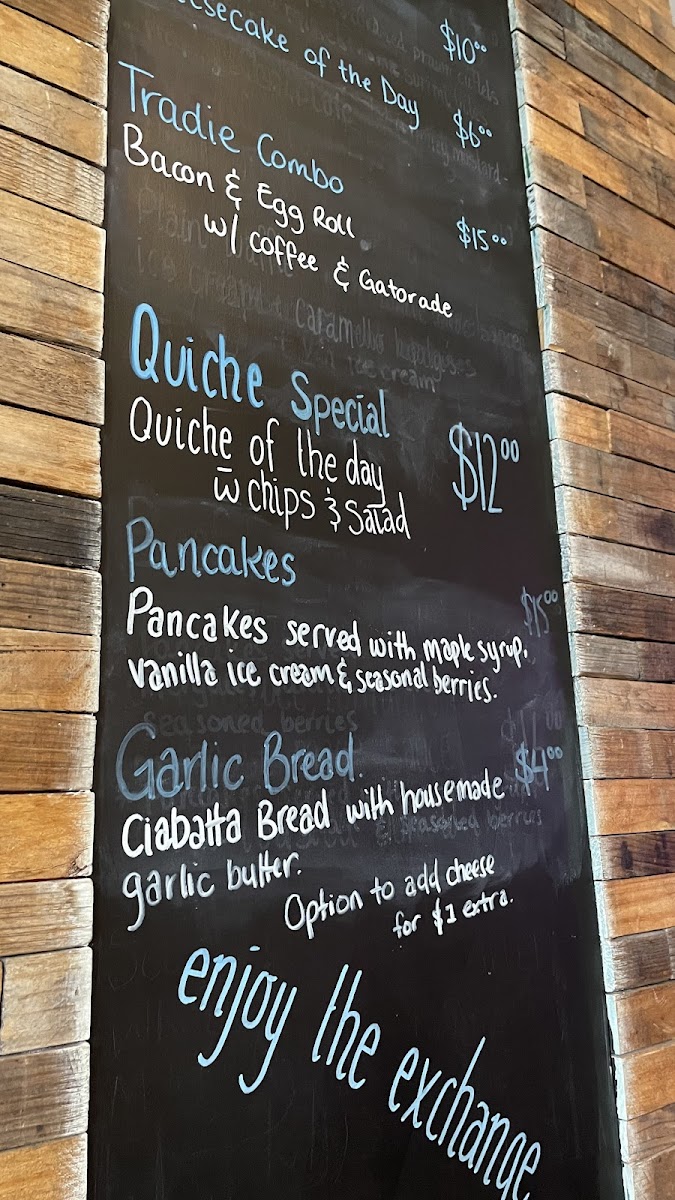 $10.00
Cheesecake of the Day
$6.00
Tradie Combo
Bacon & Egg Roll
w/ coffee & Gatorade
$15.00
Quiche Special
Quiche of the day
w̄ chips & Salad
$12.00
Pancakes
$15.00
Pancakes served with maple syrup,
vanilla ice cream & seasonal berries.
Garlic Bread
$4.00
Ciabatta Bread with housemade
garlic butter.
Option to add cheese
for $1 extra.
enjoy the exchange